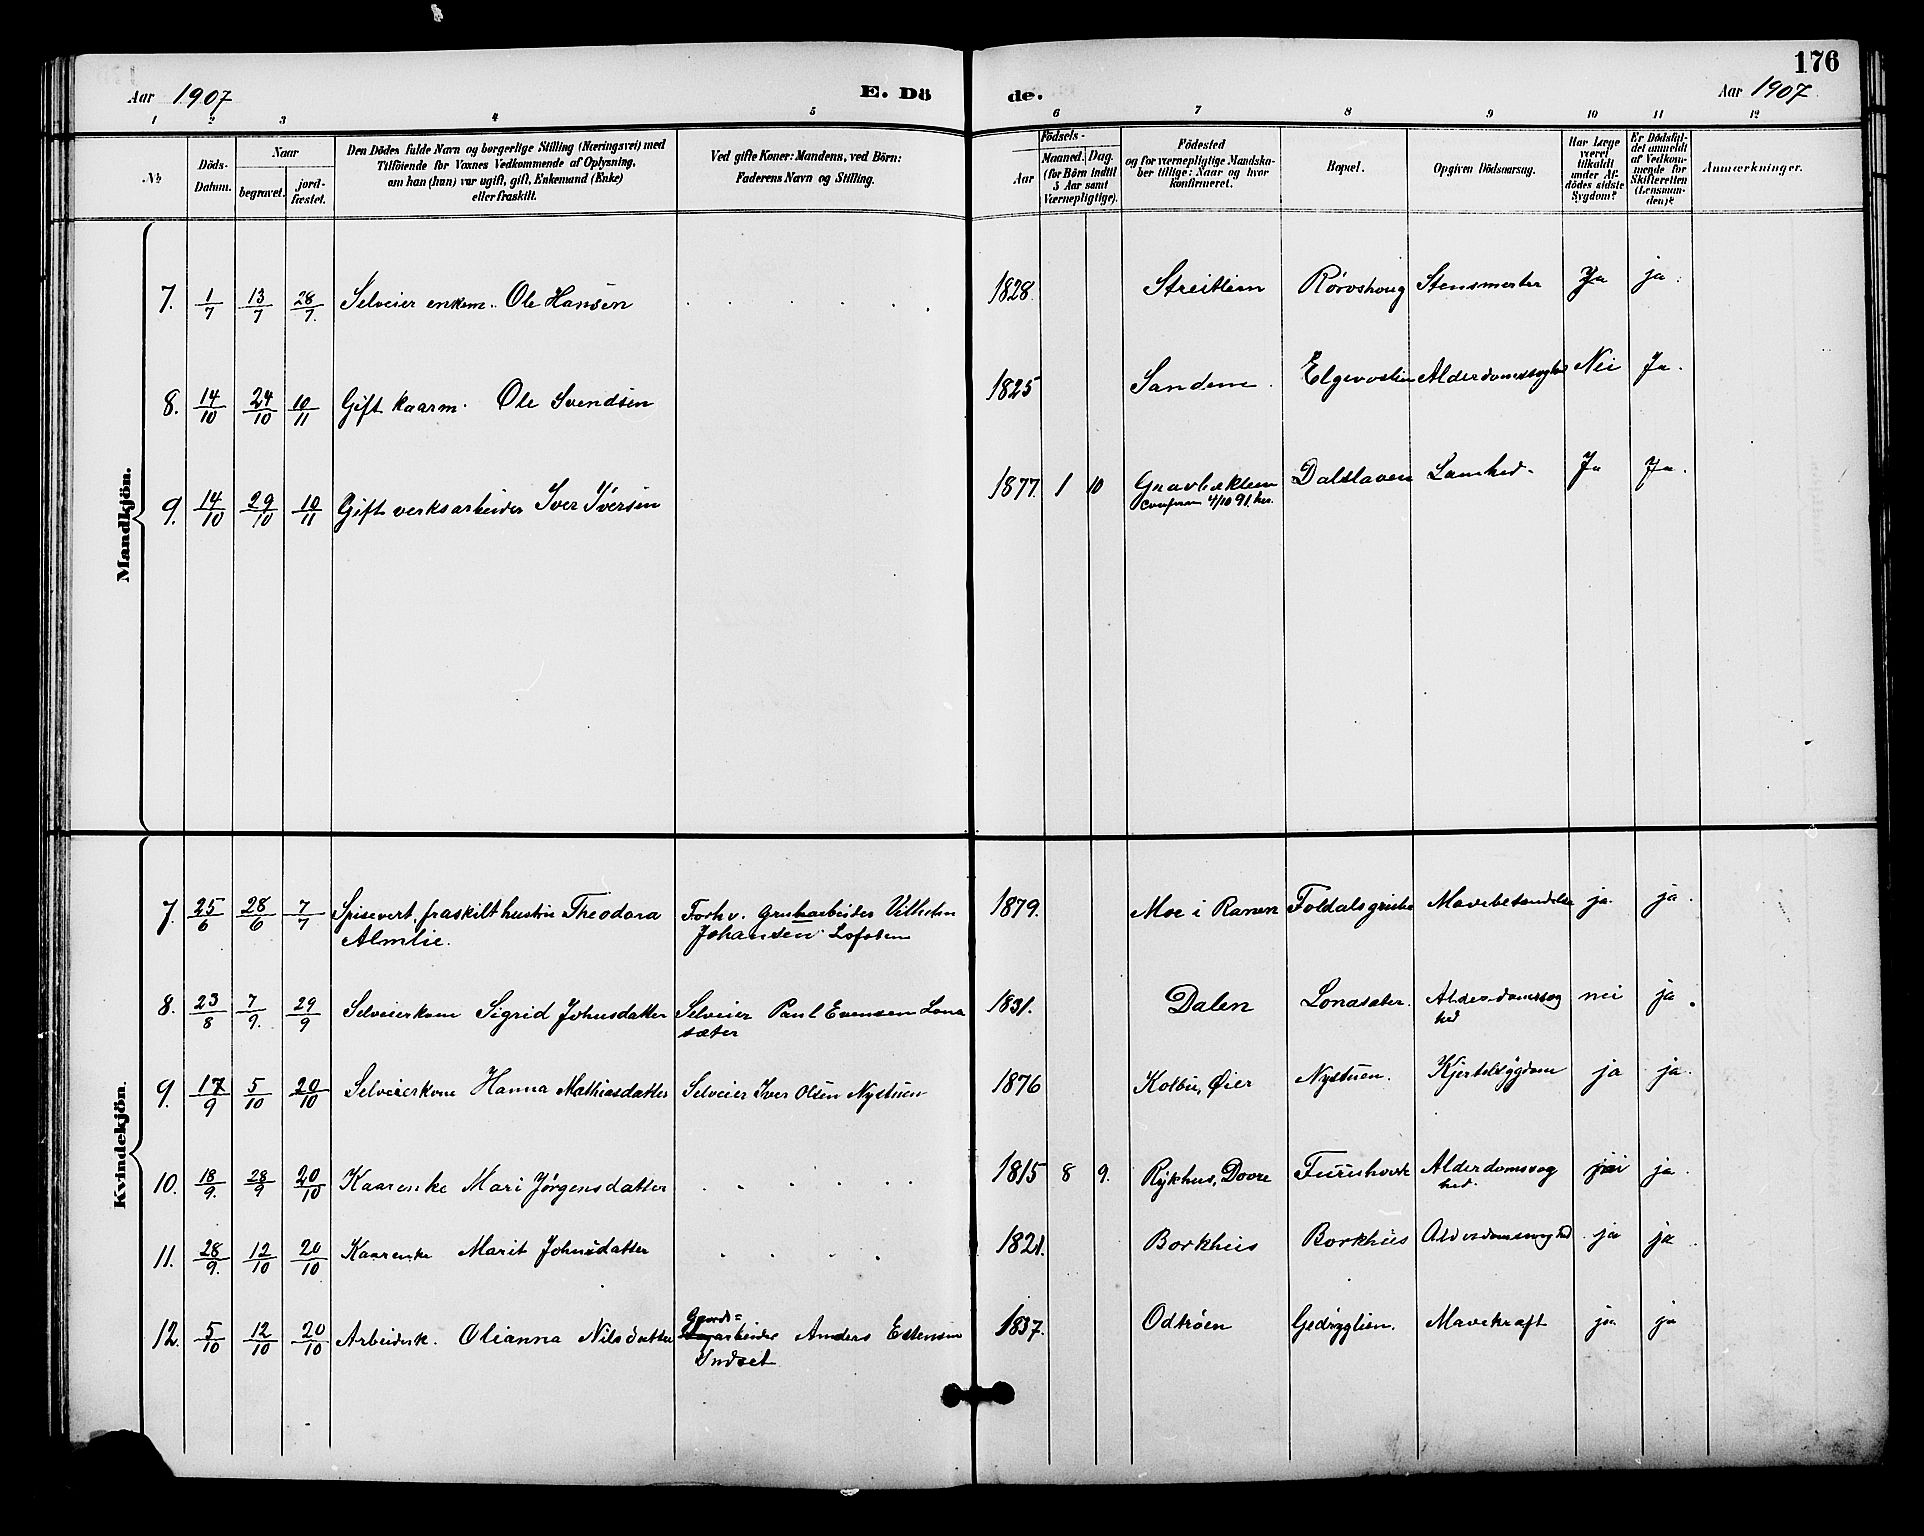 176
Aar 1907 E. Dö de. Aar 1907.
1 2 3 4 5 6 7 8 9 10 11 12
№
Döds-Datum.
Naar
begravet.
jord-fæstet.
Den Dödes fulde Navn og borgerlige Stilling (Næringsvei) med
Tilföiende for Voxnes Vedkommende af Oplysning,
om han (hun) var ugift, gift, Enkemand (Enke)
eller fraskilt.
Ved gifte Koner: Mandens, ved Börn:
Faderens Navn og Stilling.
Födsels-
Aar
Maaned. Dag.
(for Börn indtil
5 Aar samt
Værnepligtige).
Födested
og for værnepligtige Mandska-
ber tillige: Naar og hvor
konfirmeret.
Bopæl.
Opgiven Dödsaarsag.
Har Læge
været
tilkaldt
under Af-
dödes sidste
Sygdom?
Er Dödsfal-
det anmeldt
af Vedkom-
mende for
Skifteretten
(Lensman-
den)?
Anmærkninger.
Mandkjön.
7. 1/7 13/7 28/7. Selveier enkem. Ole Hansen 1828. Streitlien Rörvshoug Stensmerter Ja ja.
8. 14/10 24/10 10/11 Gift kaarm. Ole Svendsen 1825 Sandem. Alderdomssvaghed Nei Ja.
9. 14/10 29/10 10/11 Gift verksarbeider Iver Iversen 1877. 1 10 Gravbæklien Dalslaaen Ja Ja.
4/10 91. her.
Kvindekjön.
7. 25/6 28/6 7/7 Spisevert. fraskilt hustru Theodora Forhv. grubarbeider Vilhelm 1879. Moe i Ranen Foldalsgrube Mavebetændelse ja ja.
Almlie. Johansen Lofoten
8. 23/8 7/9. 29/9 Selveierkone Sigrid Johnsdatter Selveier Paul Evensen Lona 1831. Dalen Lonasæter. Alderdomssvag nei ja.
sæter hed
9. 17/9 5/10 20/10 Selveierkone Hanna Mathiasdatter Selveier Iver Olsen Nystuen 1876 Kolbu, Øier Nystuen. Kjertelsygdom ja ja.
10. 18/9. 28/9 20/10 Kaarenke Mari Jørgensdatter 1815 8 9. Rykhus, Dovre Alderdomsvag ja.
hed.
11. 28/9. 12/10 20/10 Kaarenke Marit Johnsdatter 1821. Borkhus Borkhus Alderdomssvaghed ja ja
12. 5/10 12/10 20/10 Arbeidesk. Olianna Nilsdatter Gaards=arbeider Anders Estensen 1837. Odkröen Gedrygglien. Mavekræft ja ja
Indset